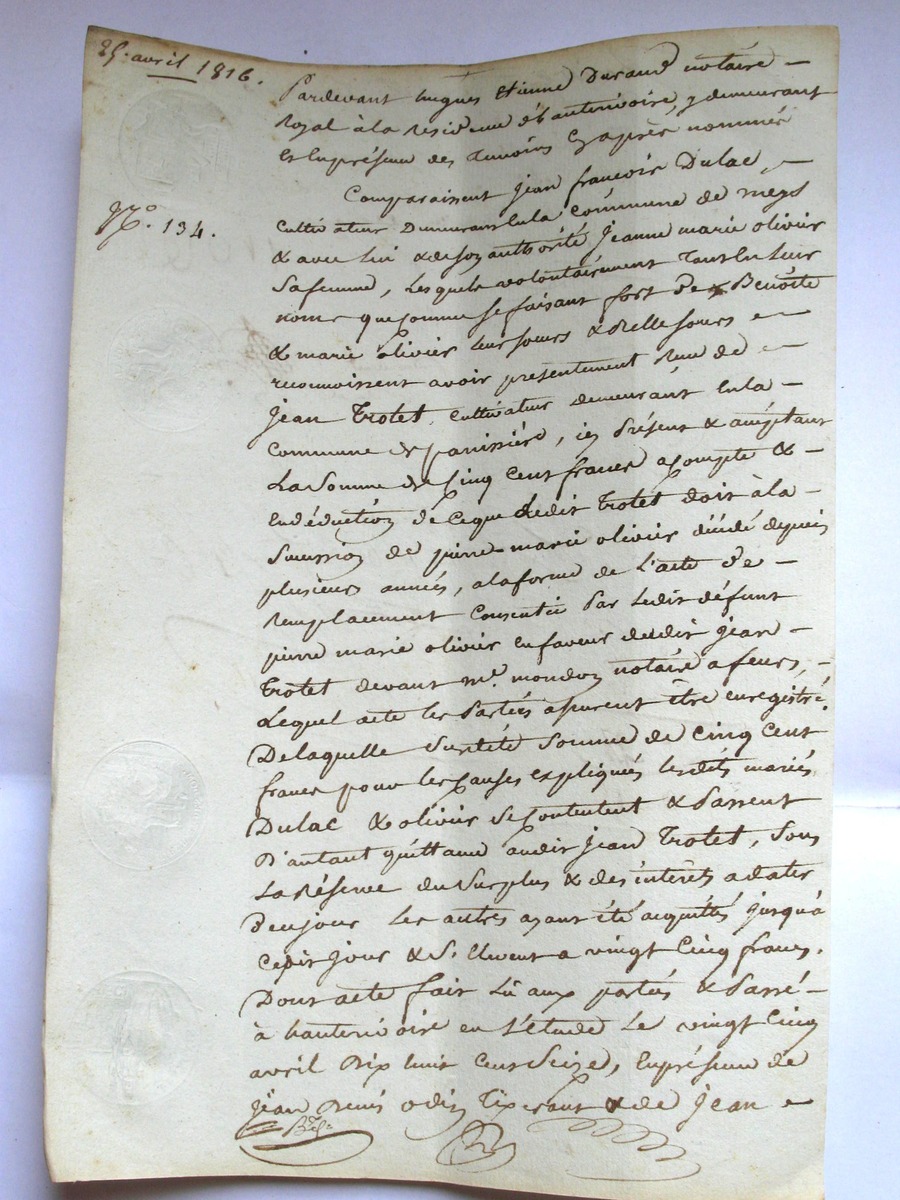 25. avril 1816.
Pardevant hugues Etienne Durand notaire
Royal à la residence d'hauterivoire, y demeurant
En présence des témoins Cy après nommés
N.º 134.
Comparaissent jean françois Dulac
Cultivateur Demeurant En la Commune de meys
& avec lui & de son authorité Jeanne marie olivier
Sa femme, Lesquels volontairement Tant En leur
noms que comme se faisant fort de Benoîte
& marie olivier leur soeurs & Belle soeurs
reconnoissent avoir présentement Reçu de
jean Trotet Cultivateur demeurant En la
Commune de panissière, icy Présent & acceptant
La Somme de Cinq Cent francs acompte &
En déduction de Ceque Ledit Trotet doit à la
Succession de pierre marie olivier décédé depuis
plusieurs années, a la forme de L'acte de
Remplacement Consentie Par Ledit défunt
pierre marie olivier en faveur dudit jean
Trotet devant m.e mondon notaire a feurs,
Lequel acte les Parties assurent être enregistré.
De laquelle Susdite Somme de Cinq Cent
francs pour les Causes expliquées lesdits mariés
Dulac & olivier Se Contentent & Passent
D'autant quittance audit jean Trotet, Sous
La Réserve du Surplus & des intérêts a dater
De ce jour Les autres ayant été acquittés jusqu'à
Cedit jour & S'élevent a vingt Cinq francs.
Dont acte fait Lû aux parties & Passé
à hauterivoire en L'étude Le vingt Cinq
avril Dix huit Cent Seize, En présence de
jean Remis odin Tixerant & de Jean